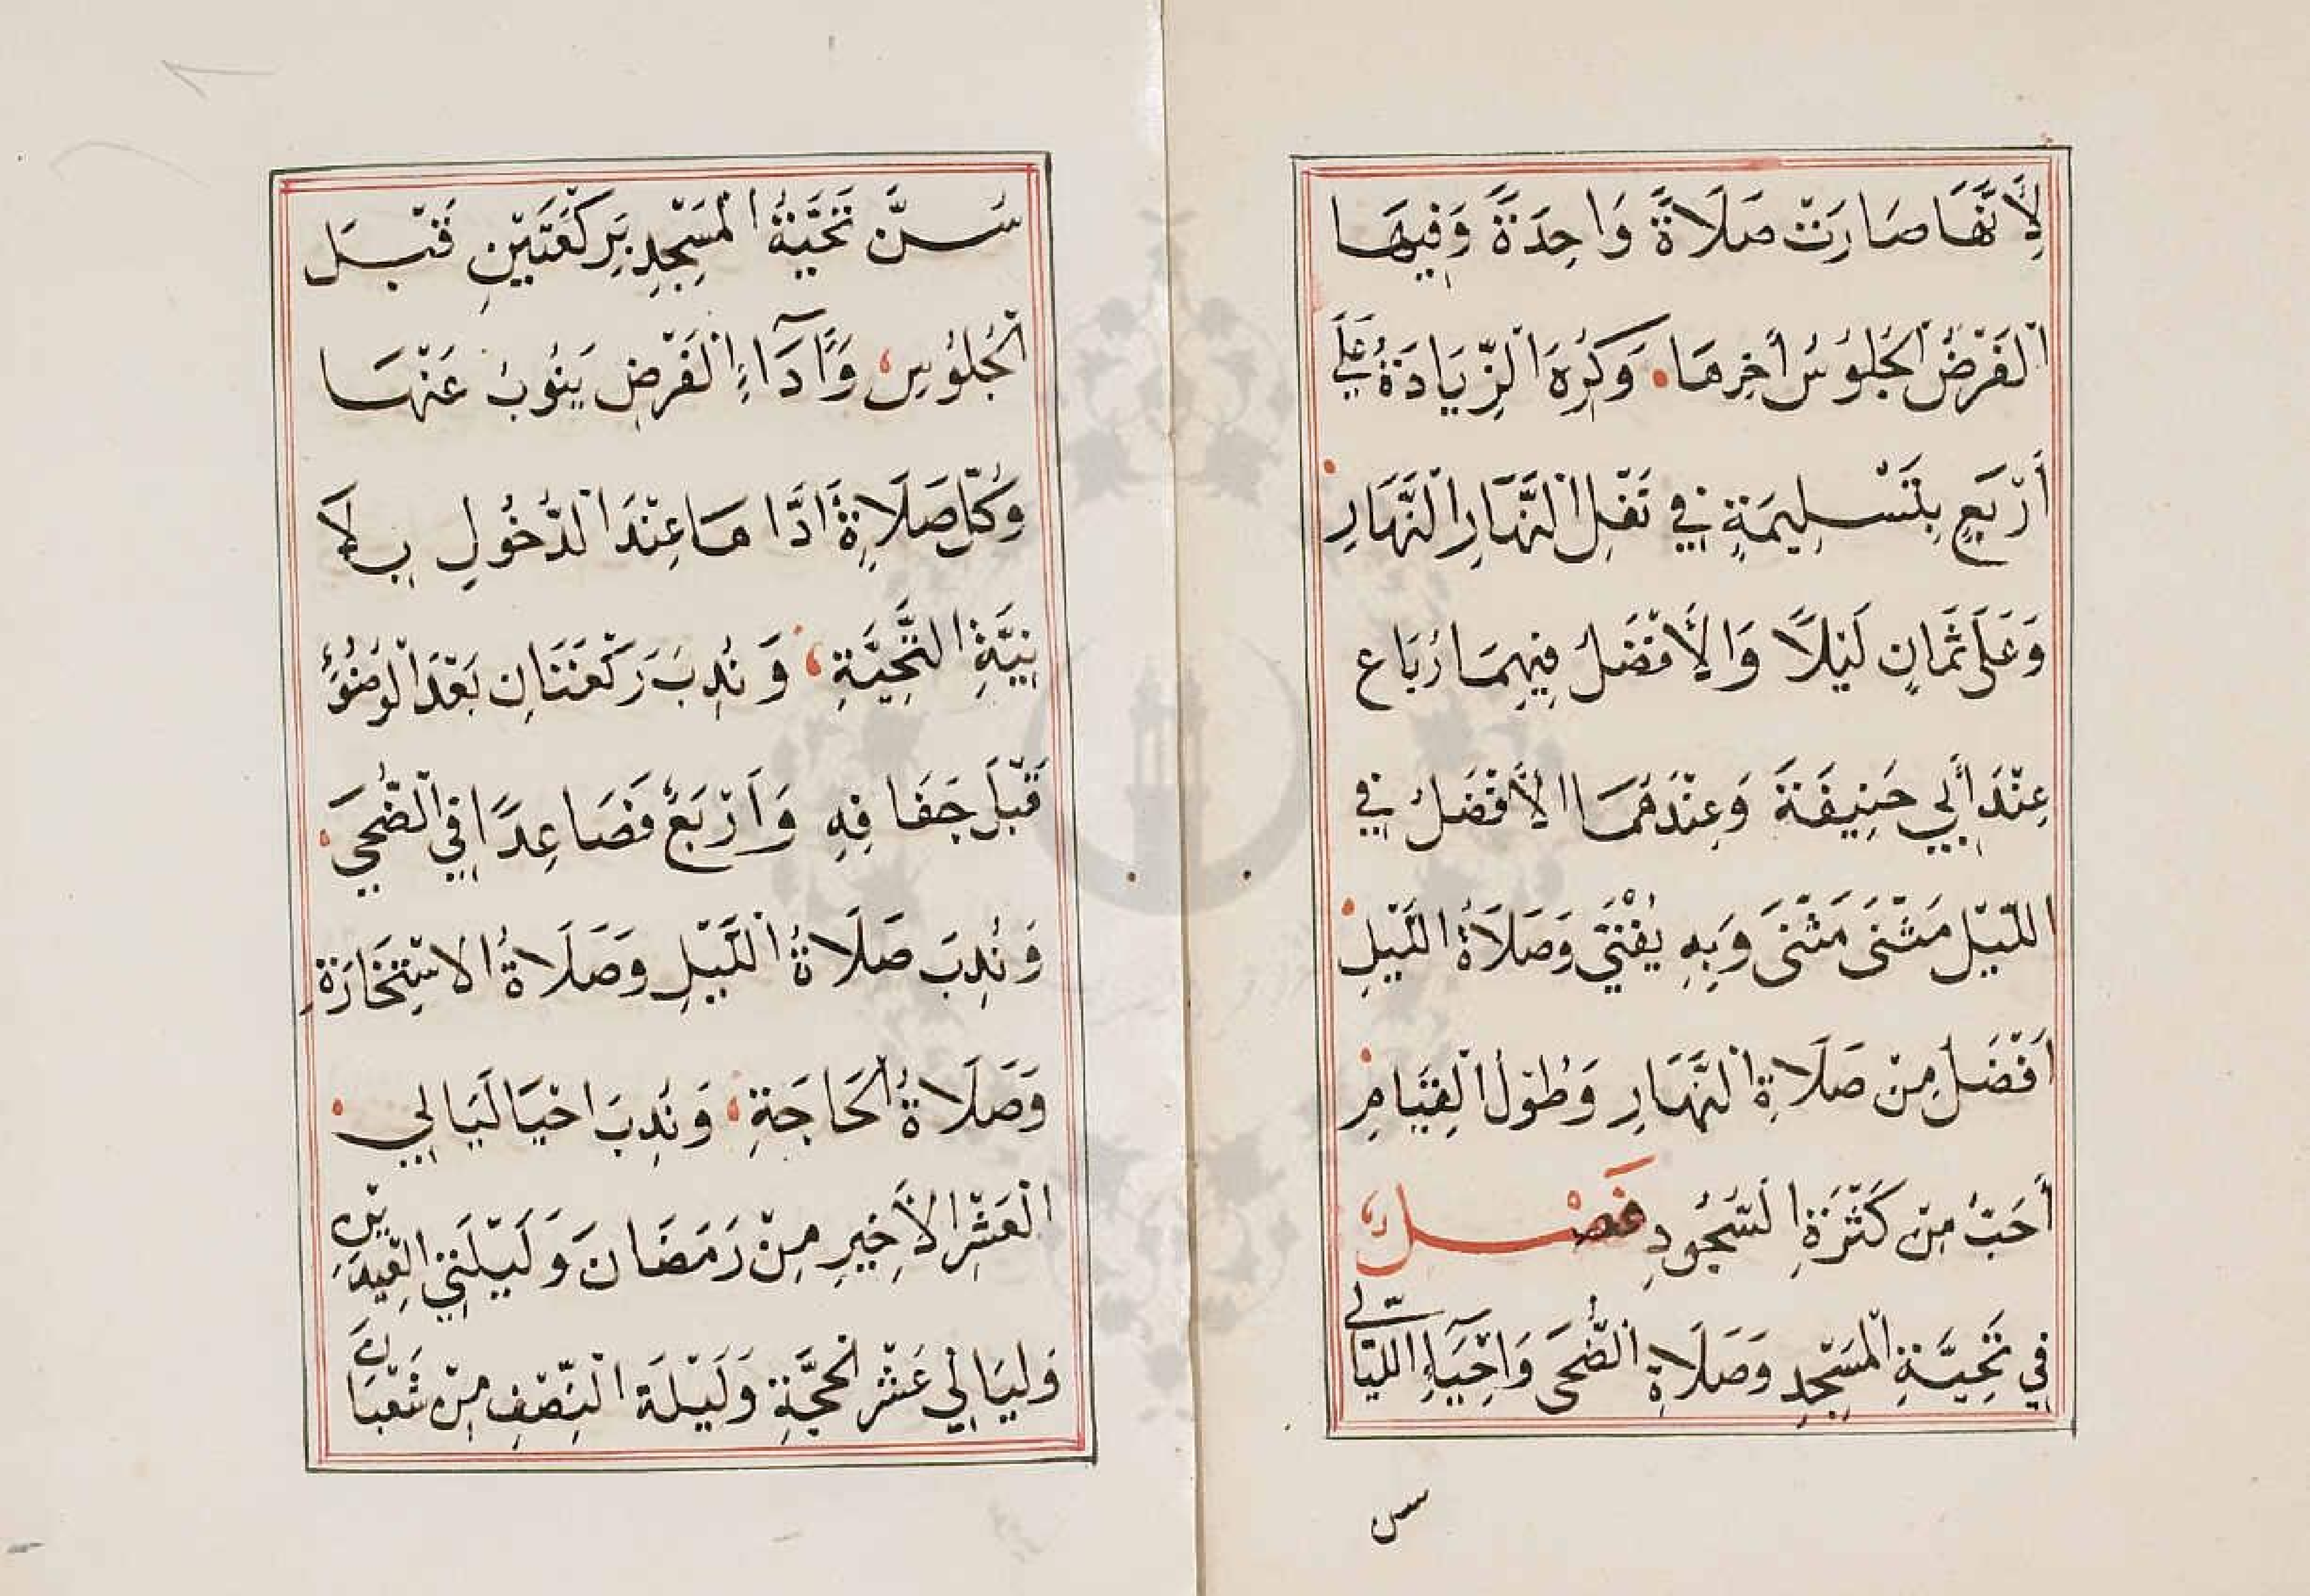 لِأَنَّهَا صَارَتْ صَلَاةً وَاحِدَةً وَفِيهَا
الْفَرْضُ الْجُلُوسُ أٰخِرِهَا وَكُرِهَ الزِّيَادَةُ عَلَى
أَرْبَعٍ بِتَسْلِيمَةٍ فِي نَفْلِ النَّهَارِ النَّهَارِ
وَعَلَى ثَمَانٍ لَيْلًا وَالْأَفْضَلُ فِيهِمَا رُبَاع
عِنْدَ أَبِي حَنِيفَةَ وَعِنْدَهُمَا الْأَفْضَلُ فِي
اللَّيْلِ مَثْنَى مَثْنَى وَبِهِ يُفْتَى وَصَلَاةُ اللَّيْلِ
اَفْضَلُ مِنْ صَلَاةِ النَّهَارِ وَطُوْلُ الْقِيَامِ
أَحَبُّ مِنْ كَثْرَةِ السُّجُودِ فَصْلٌ
فِي تَحِيَّةِ الْمَسْجِدِ وَصَلَاةِ الضُّحَى وَاِحْيَآءِ اللَّيَالِي
س
سُنَّ تَحِيَّةُ الْمَسْجِدِ بِرَكْعَتَيْنِ قَبْلَ
الْجُلُوسِ وَآَدَاءِ الْفَرْضِ يَنُوبُ عَنْهَا
وَكُلُّ صَلَاةٍ أَدَّاهَا عِنْدَ الدُّخُولِ بِلَا
نِيَّةِ التَّحِيَّةِ وَنُدِبَ رَكْعَتَانِ بَعْدَ الْوُضُوْءِ
قَبْلَ جَفَافِهِ وَاَرْبَعٌ فَصَاعِدًا فِي الضُّحَى
وَنُدِبَ صَلَاةُ اللَّيْلِ وَصَلَاةُ الاسْتِخَارَةِ
وَصَلَاةُ الْحَاجَةِ وَنُدِبَ اِحْيَا لَيَالِي
الْعَشْرِ الْأَخِيرِ مِنْ رَمَضَانَ وَلَيْلَتَيِ الْعِيدَيْنِ
وَلَيَالِي عَشْرِ الْحِجَّةِ وَلَيْلَةَ النِّصْفِ مِنْ شَعْبَانَ